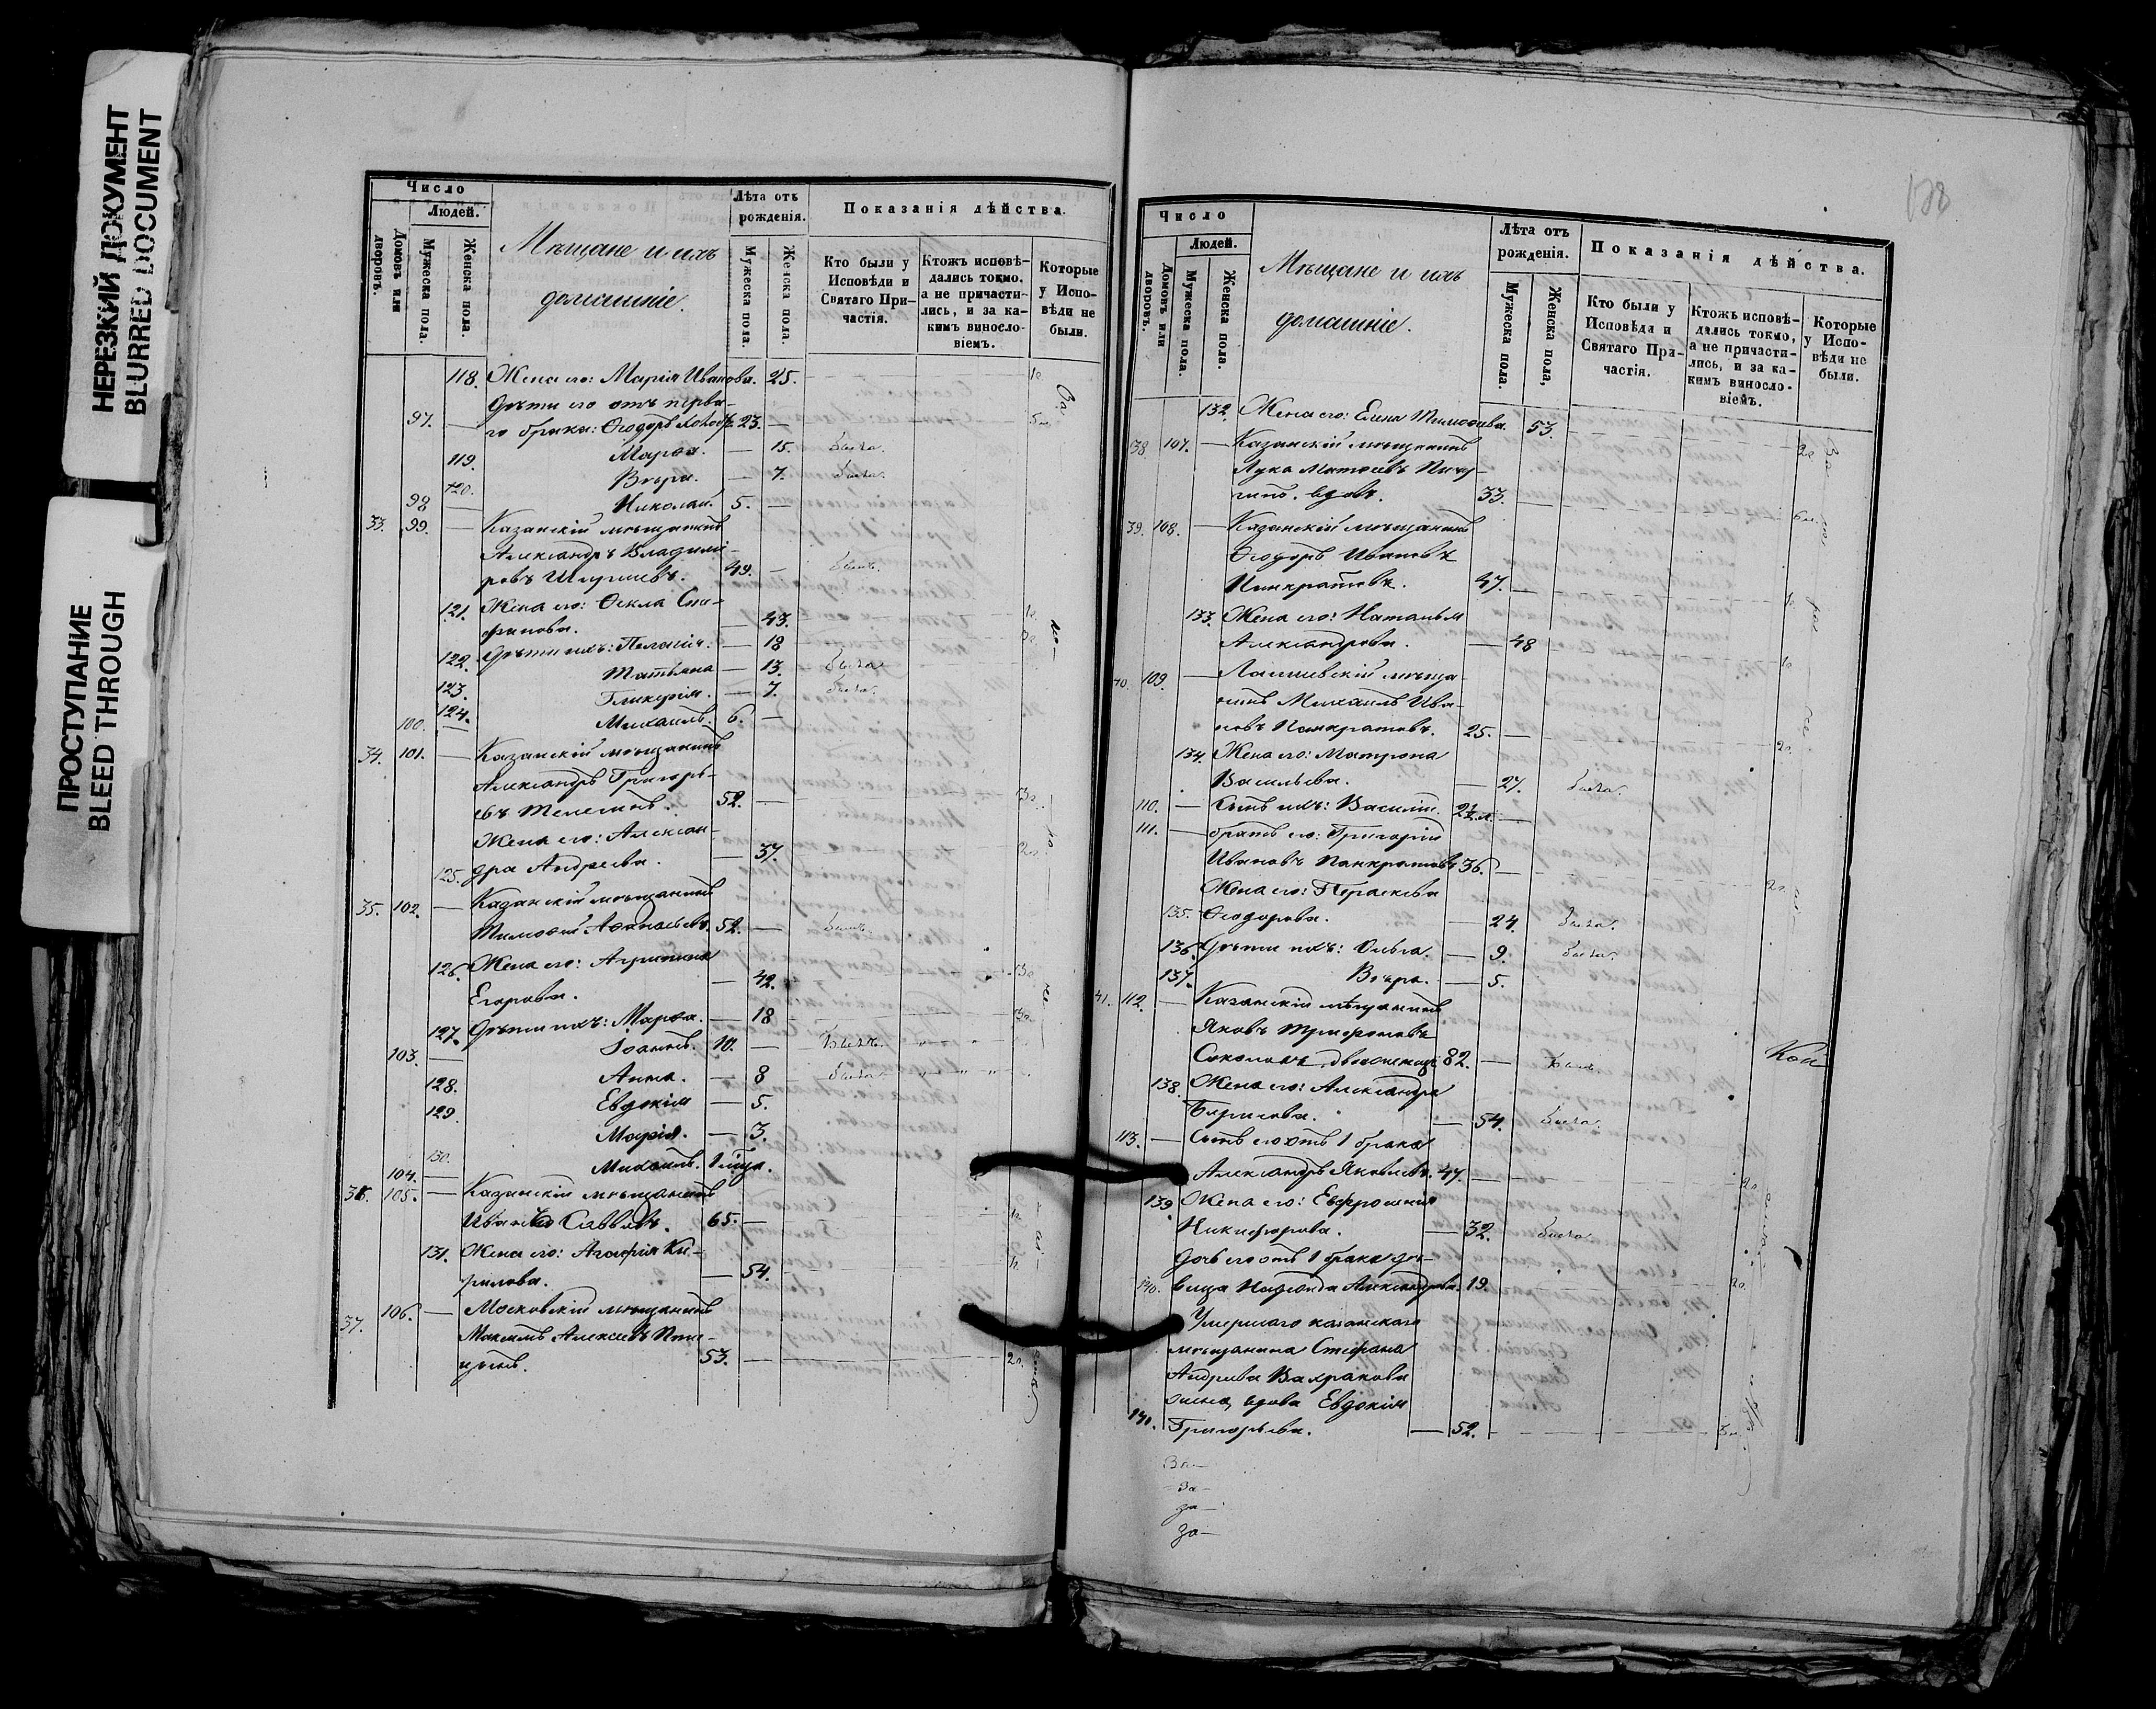 НЕРЕЗКИЙ ДОКУМЕНТ
BLURRED DOCUMENT
ПРОСТУПАНИЕ
BLEED THROUGH
Число
Людей.
Домовъ или дворовъ.
Мужеска пола.
Женска пола.
Мѣщане и ихъ
домашніе.
Лѣта отъ
рожденія.
Мужеска пола.
Женска пола.
Показанія дѣйства.
Кто были у
Исповѣди и
Святаго При-
частія.
Ктожъ исповѣ-
дались токмо,
а не причасти-
лись, и за ка-
кимъ винословіемъ.
Которые
у Испо-
вѣди не
были.
118. Жена его: Марія Иванова. 25. 1г.
Дѣти его отъ перва-
97. — го брака: Ѳеодоръ 23. —
119. Марѳа. — 15. Была.
120. Вѣра. — 7. Была.
98 — Николай. 5. —
33. 99. — Казанскій мѣщанинъ
Александръ Владимі-
ровъ 49. — Былъ.
121. Жена его: Ѳекла Сте-
фанова. — 43.
122. Дѣти ихъ: Пелагія. — 18
123. Татьяна — 13. Была.
124. Гликерія. — 7. Была.
100. — Михаилъ. 6. —
34. 101. — Казанскій мѣщанинъ
Александръ Григорь-
евъ Телегинъ. 52. —
Жена его: Алексан-
125. дра Андреева. — 37. 2г.
35. 102. — Казанскій мѣщанинъ
Тимоѳей Аѳанасьевъ. 52. — Былъ.
126. Жена его: Агрипина
Егорова. — 42.
127. Дѣти ихъ: Марѳа. — 18
103. — Іоаннъ. 10. — Былъ.
128. Анна. — 8 Была.
129. Евдокія — 5.
130. Марія. — 3.
104. — Михаилъ. 1 года.
36. 105. — Казанскій мѣщанинъ
Иванъ Савватѣ. 65. — 1г.
131. Жена его: Агафія Ки-
рилова. — 54. 1г.
37. 106. — Московскій мѣщанинъ
Максимъ Алексѣевъ Пти-
цынъ. 53. — 2г.
138
Число
Людей.
Домовъ или дворовъ.
Мужеска пола.
Женска пола.
Мѣщане и ихъ
домашніе.
Лѣта отъ
рожденія.
Мужеска пола.
Женска пола,
Показанія дѣйства.
Кто были у
Исповѣди и
Святаго При-
частія.
Ктожъ исповѣ-
дались токмо,
а не причасти-
лись, и за ка-
кимъ винословіемъ.
Которые
у Испо-
вѣди не
были.
132. Жена его: Елена Тимоѳеева. 53. 2г.
38. 107. — Казанскій мѣщанинъ
Лука Матвеевъ Пичу-
гинъ. вдовъ. 33. —
39. 108. — Казанскій мѣщанинъ
Ѳеодоръ Ивановъ
Панкратовъ. 47. — 1г.
133. Жена его: Наталья
Александрова. — 48 1г.
40. 109. — Лаишевскій мѣща-
нинъ Михаилъ Ива-
новъ Панкратовъ. 25. — 2г.
134. Жена его: Матрона
Васильева. — 27. Была.
110. — Сынъ ихъ: Василій. —
111. — братъ его: Григорій
Ивановъ Панкратовъ 36. — 2г.
Жена его: Параскева
135. Ѳеодорова. — 24. Была.
136. Дѣти ихъ: Ольга. — 9. Была.
137. Вѣра. — 5.
41. 112. — Казанскій мѣщанинъ
Яковъ Трифоновъ
Соколовъ 82. — Былъ.
138. Жена его: Александра
Борисова. — 54. Была.
113. — Сынъ его отъ 1 брака
Александръ Яковлевъ. 47. — 2г.
139. Жена его: Евфросинія
Никифорова. — 32. Была.
Дочь его отъ 1 брака дѣ-
140. вица Надежда Александрова. 19. 2г.
Умершаго казанскаго
мѣщанина Стефана
Андреева
жена, вдова Евдокія
141. Григорьева. — 52.
За—
За—
За—
За—